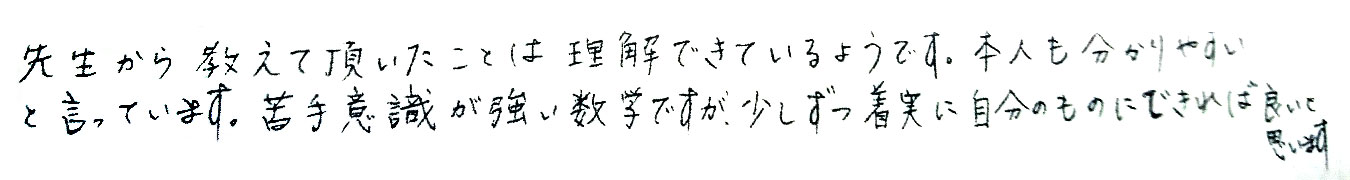 先生から教えて頂いたことは理解できているようです。本人も分かりやすい
と言っています。苦手意識が強い数学ですが、少しずつ着実に自分のものにできれば良いと
思います